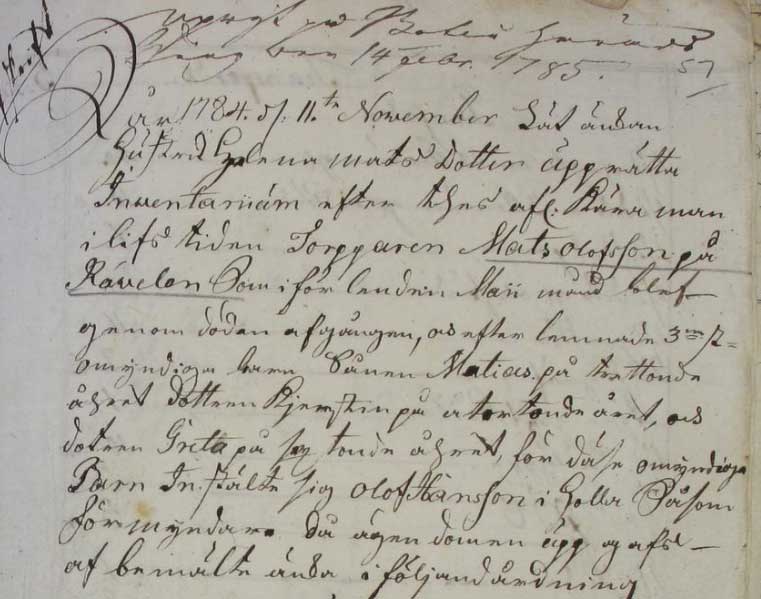 på
ting den 14 Febr. 1785. 57
År 1784. d/: 11.te November Låt änkan
Hústrú Helena mats Dotter úpprätta
Inwentariúm efter thes afl: Kära man
i lifs tiden Torpparen Mats olofsson på
Råvelen Som i för leden Maii månd blef
genom döden afgången, ock efter lemnade 3ne st
omyndiga barn Sånen Matias på trettonde
åhret dottren Kjerstin på atortonde året, ock
dotren Greta på siytonde åhret, för dåse omyndiga
Barn Instälte sig olof Hansson i Holla Såsom
förmyndare Då ägendomen úpp gafs
af bemälte änka i följand årdning